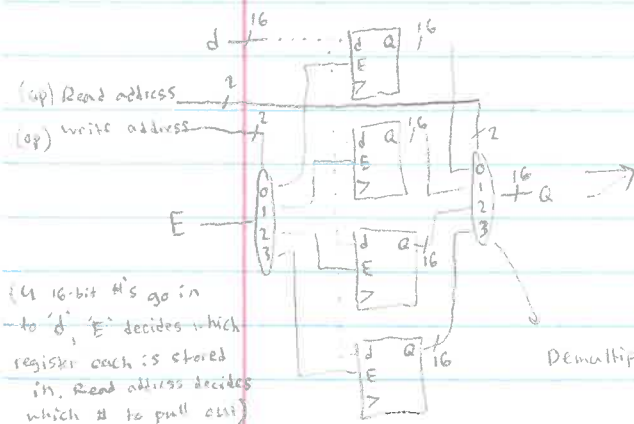 d 16
d Q 16
E
(op) Read address 2
(op) Write address 2
2
d Q 16
E
0
1
2
3
E
0
1
2
3
16
Q
d Q
E
16
d Q
E
16
(4 16-bit #'s go in
to 'd', 'E' decides which
register each is stored
in. Read address decides
which # to pull out)